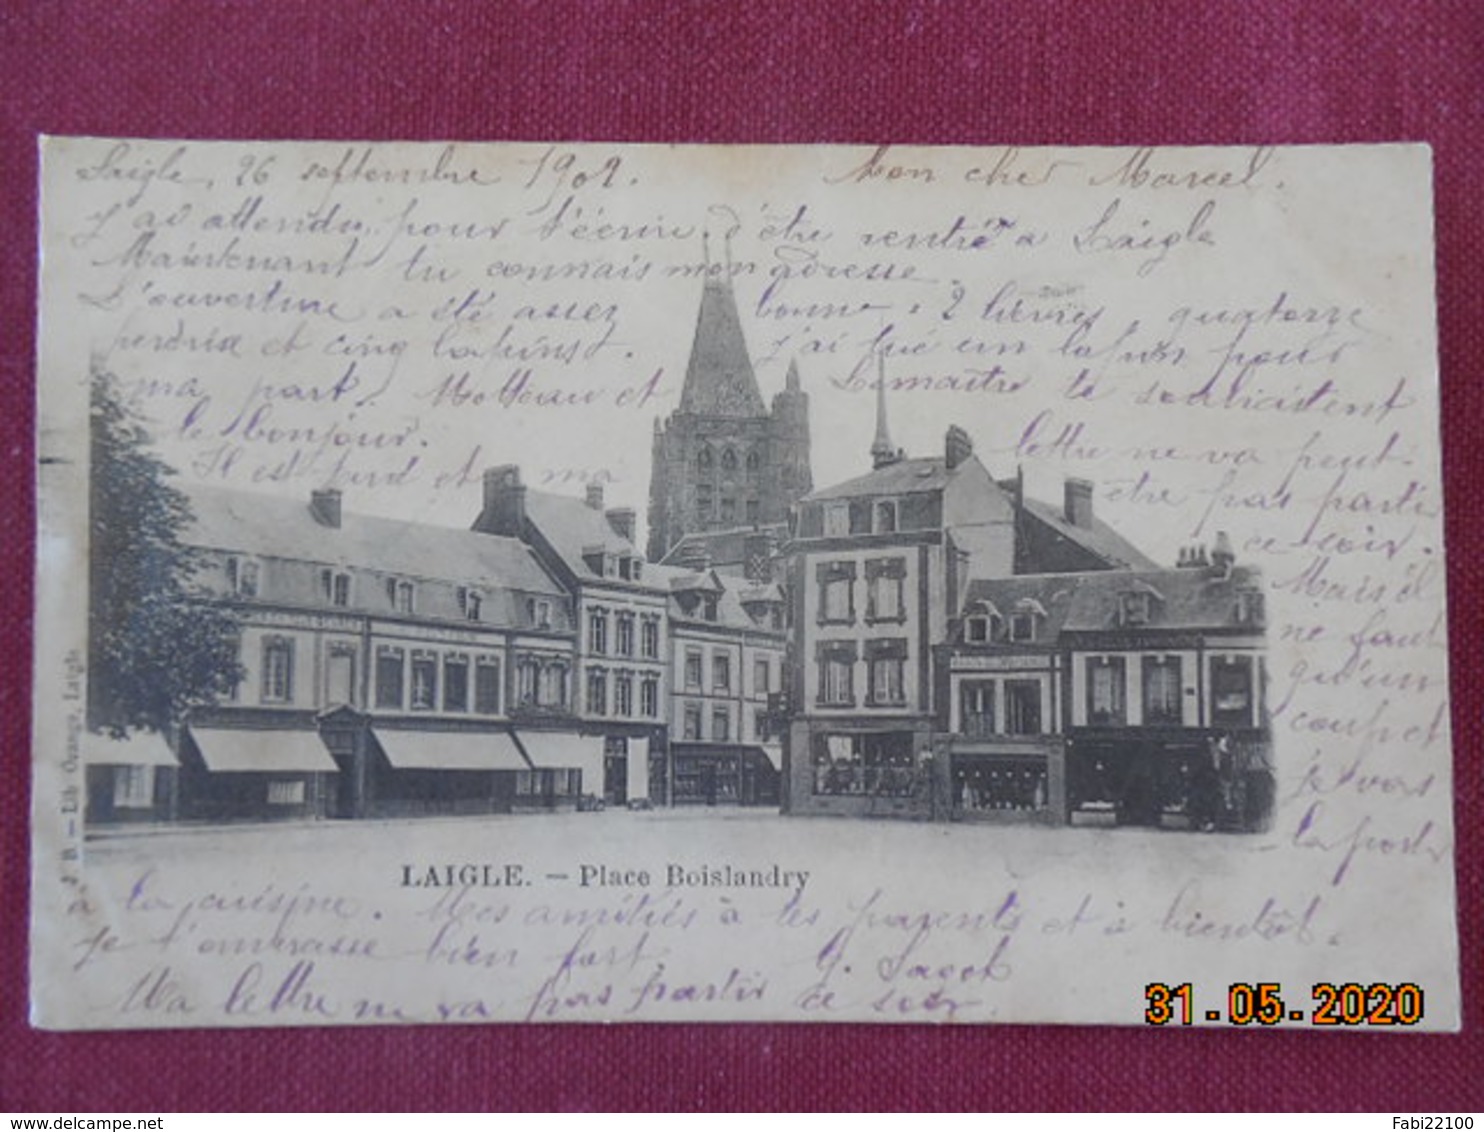 Laigle, 26 septembre 1902.
Mon cher Marcel.
J'ai attendu, pour t'écrire, d'être rentré a Laigle
Maintenant tu connais mon adresse.
L'ouverture a été assez bonne : 2 lièvres, quatorze
perdrix et cinq lapins. J'ai tué un lapin pour
ma part. Motteau et Lemaitre te souhaitent
le bonjour.
Il est tard et ma
lettre ne va peut-
être pas partir
ce soir.
Mais il
ne faut
qu'un
Je vais
la porter
LAIGLE. — Place Boislandry
J B — Lib Orange, Laigle
à la cuisine. Mes amitiés à tes parents et à bientôt.
Je t'embrasse bien fort.
Ma lettre ne va pas partir ce soir.
31.05.2020
delcampe.net
Fabi22100